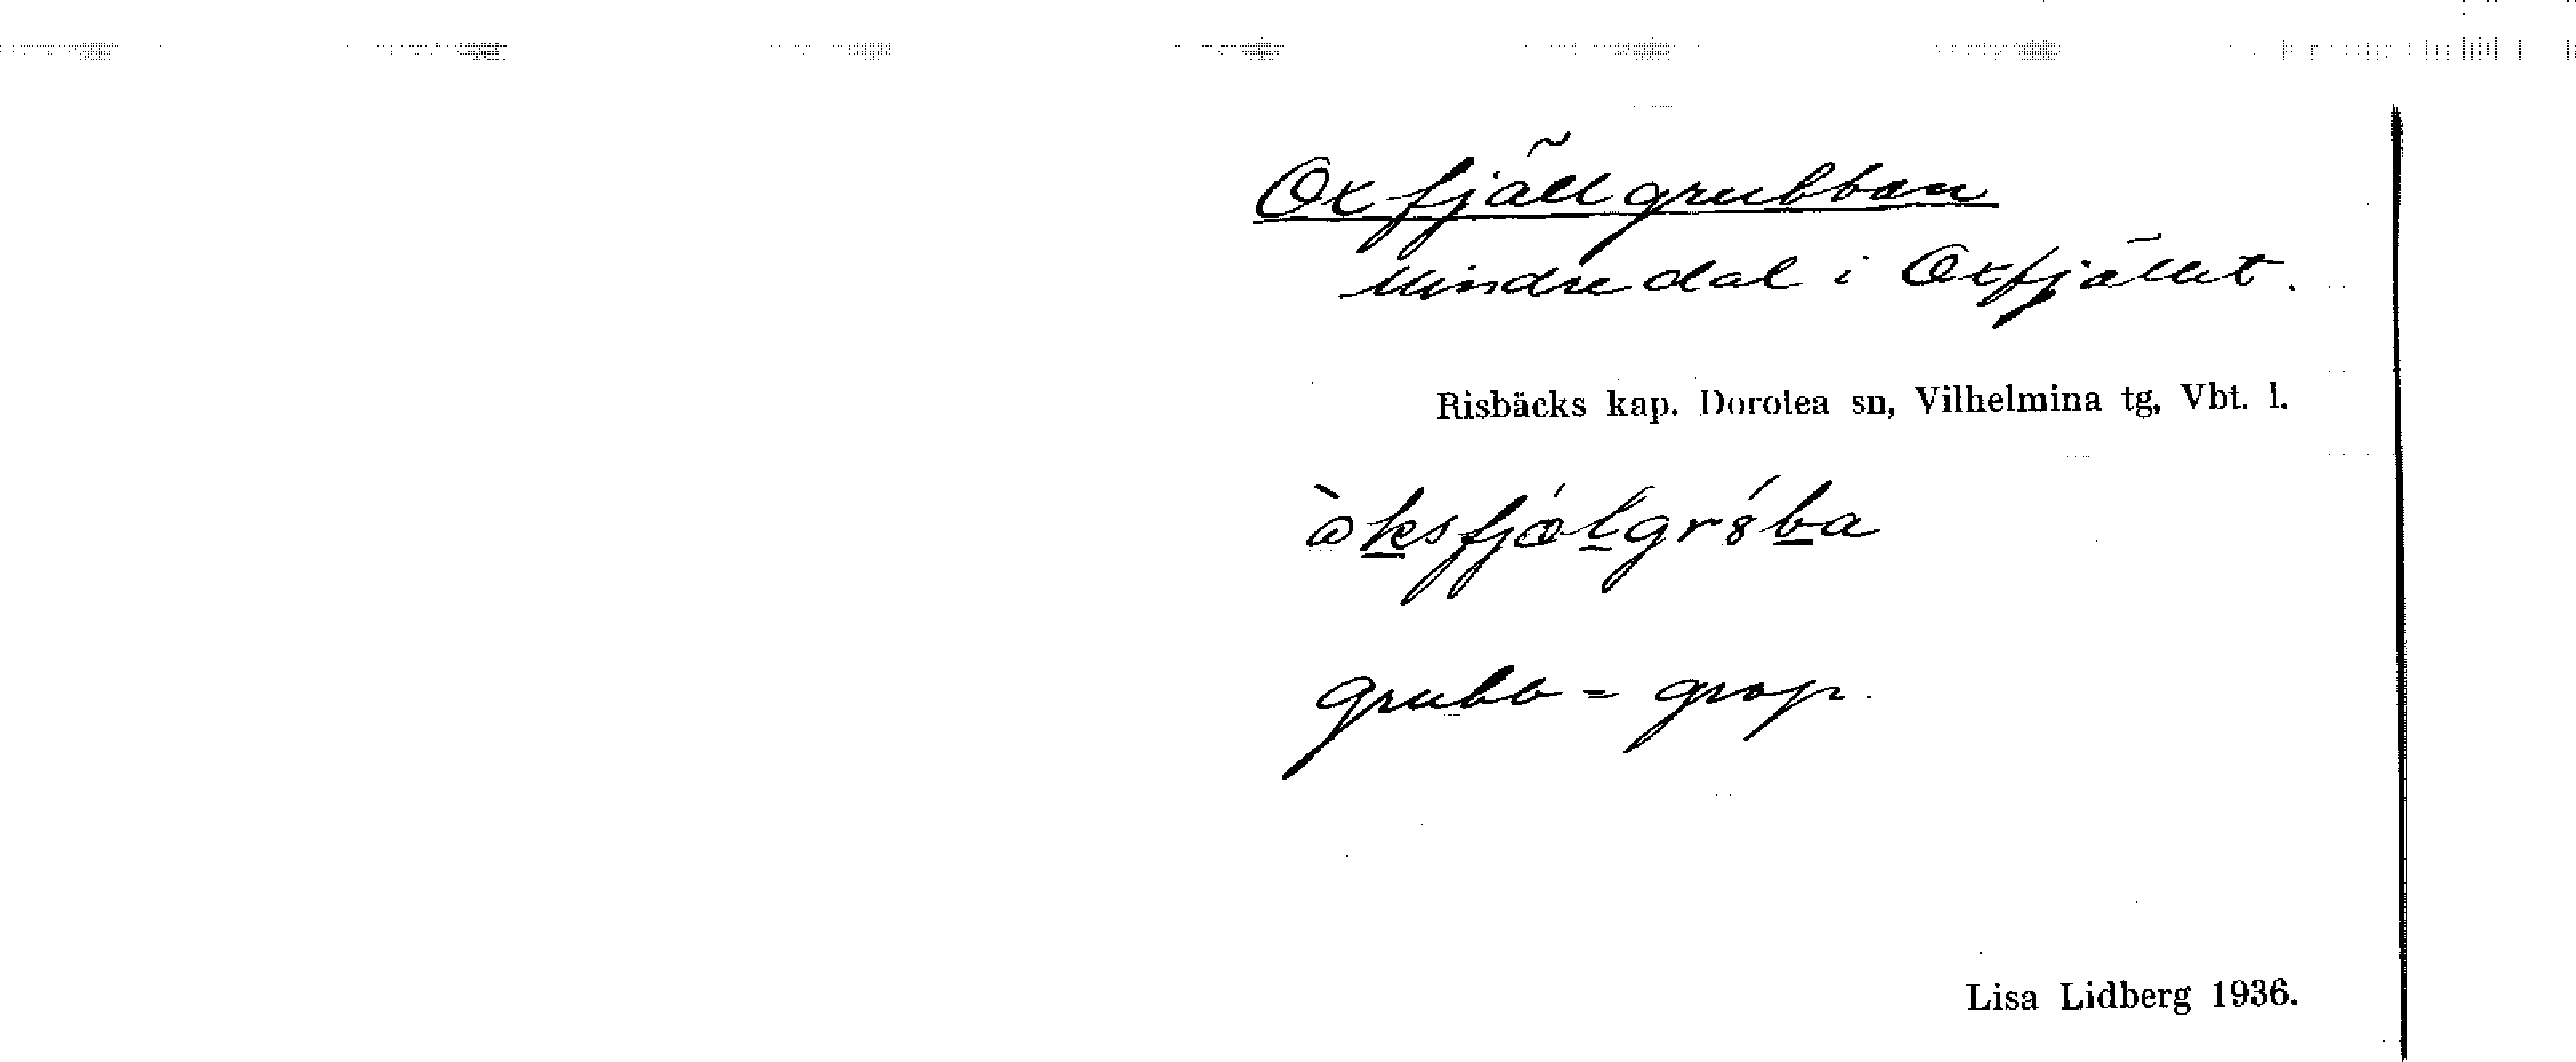 Oxfjällgrubban
Mindre dal i Oxfjället.
Risbäcks kap. Dorotea sn, Vilhelmina tg, Vbt. l.
grubb = grop.
Lisa Lidberg 1936.